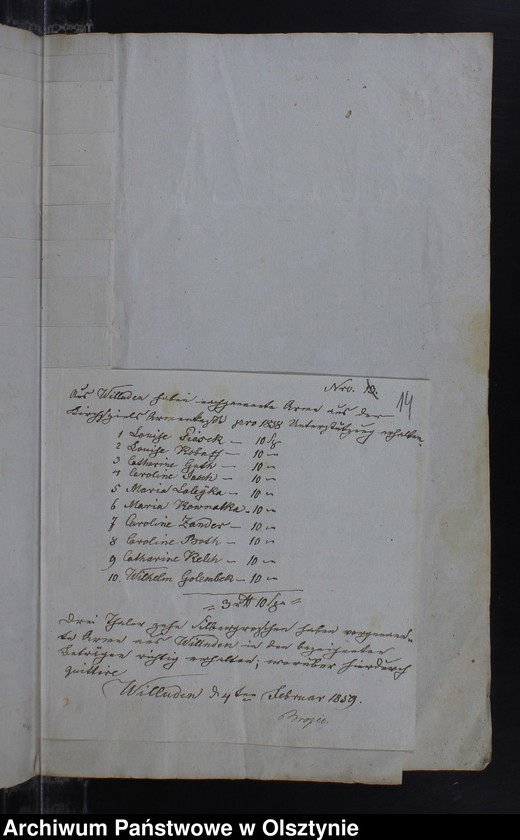 Nro. 10.
14
Aus Willuden haben nachgenannte Arme aus der
Kirchspiels Armenkasse pro 1858 Unterstützung erhalten.
1 Louise Piasek — 10 Sg
2 Louise — 10 —
3 Catharine Guth — 10 —
4 Caroline — 10 —
5 Maria — 10 —
6 Maria Kownatka — 10 —
7 Caroline Zander — 10 —
8 Caroline — 10 —
9 Catharine Kelch — 10 —
10. Wilhelm Golembek — 10 —
= 3 rtl 10 Sgr =
Drei Thaler zehn Silbergroschen haben vorgenann-
te Arme aus Willuden in den bezeichneten
Beträgen richtig erhalten, worüber hierdurch
quittire
Willuden d 4ten Februar 1859.
Archiwum Państwowe w Olsztynie